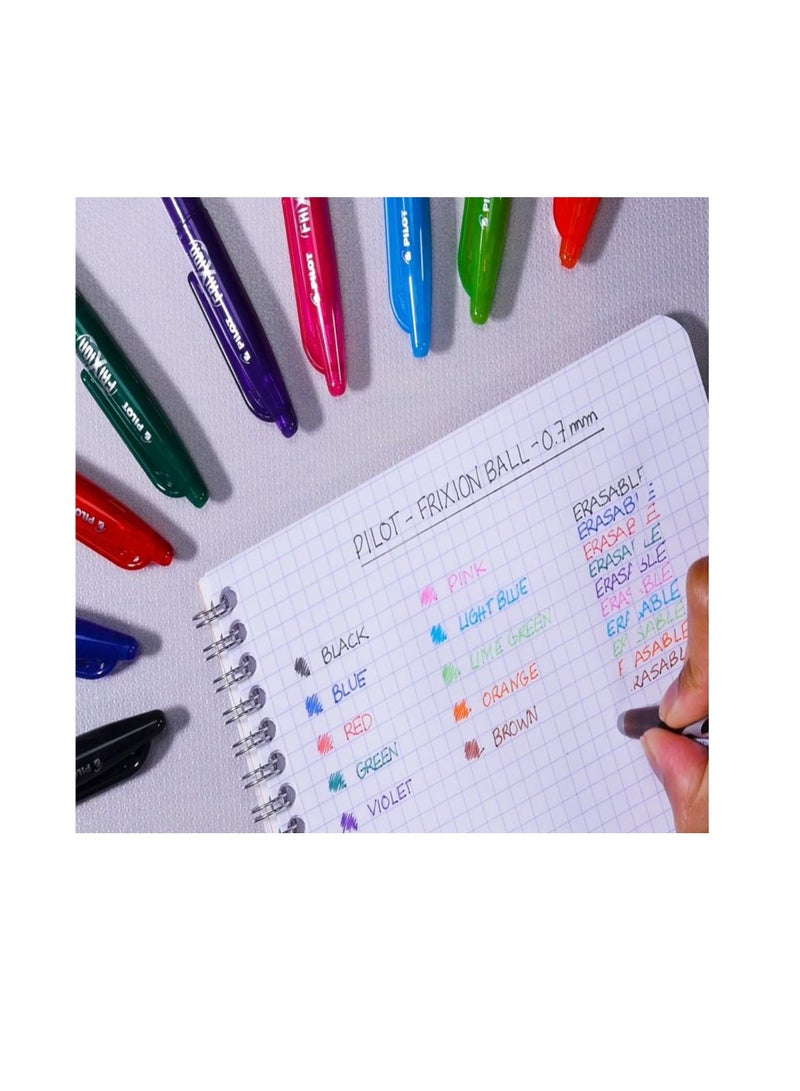 FRIXION PILOT
FRIXION PILOT
FRIX PILOT
PILOT
PI
PILOT
PIL
PILOT - FRIXION BALL - 0.7mm
BLACK
BLUE
RED
GREEN
VIOLET
PINK
LIGHT BLUE
LIME GREEN
ORANGE
BROWN
ERASABL
ERASAB
ERASA E
ERASA LE
ERAS LE
ERAS BLE
ER ABLE
E SABLE
ASABLE
RASABL